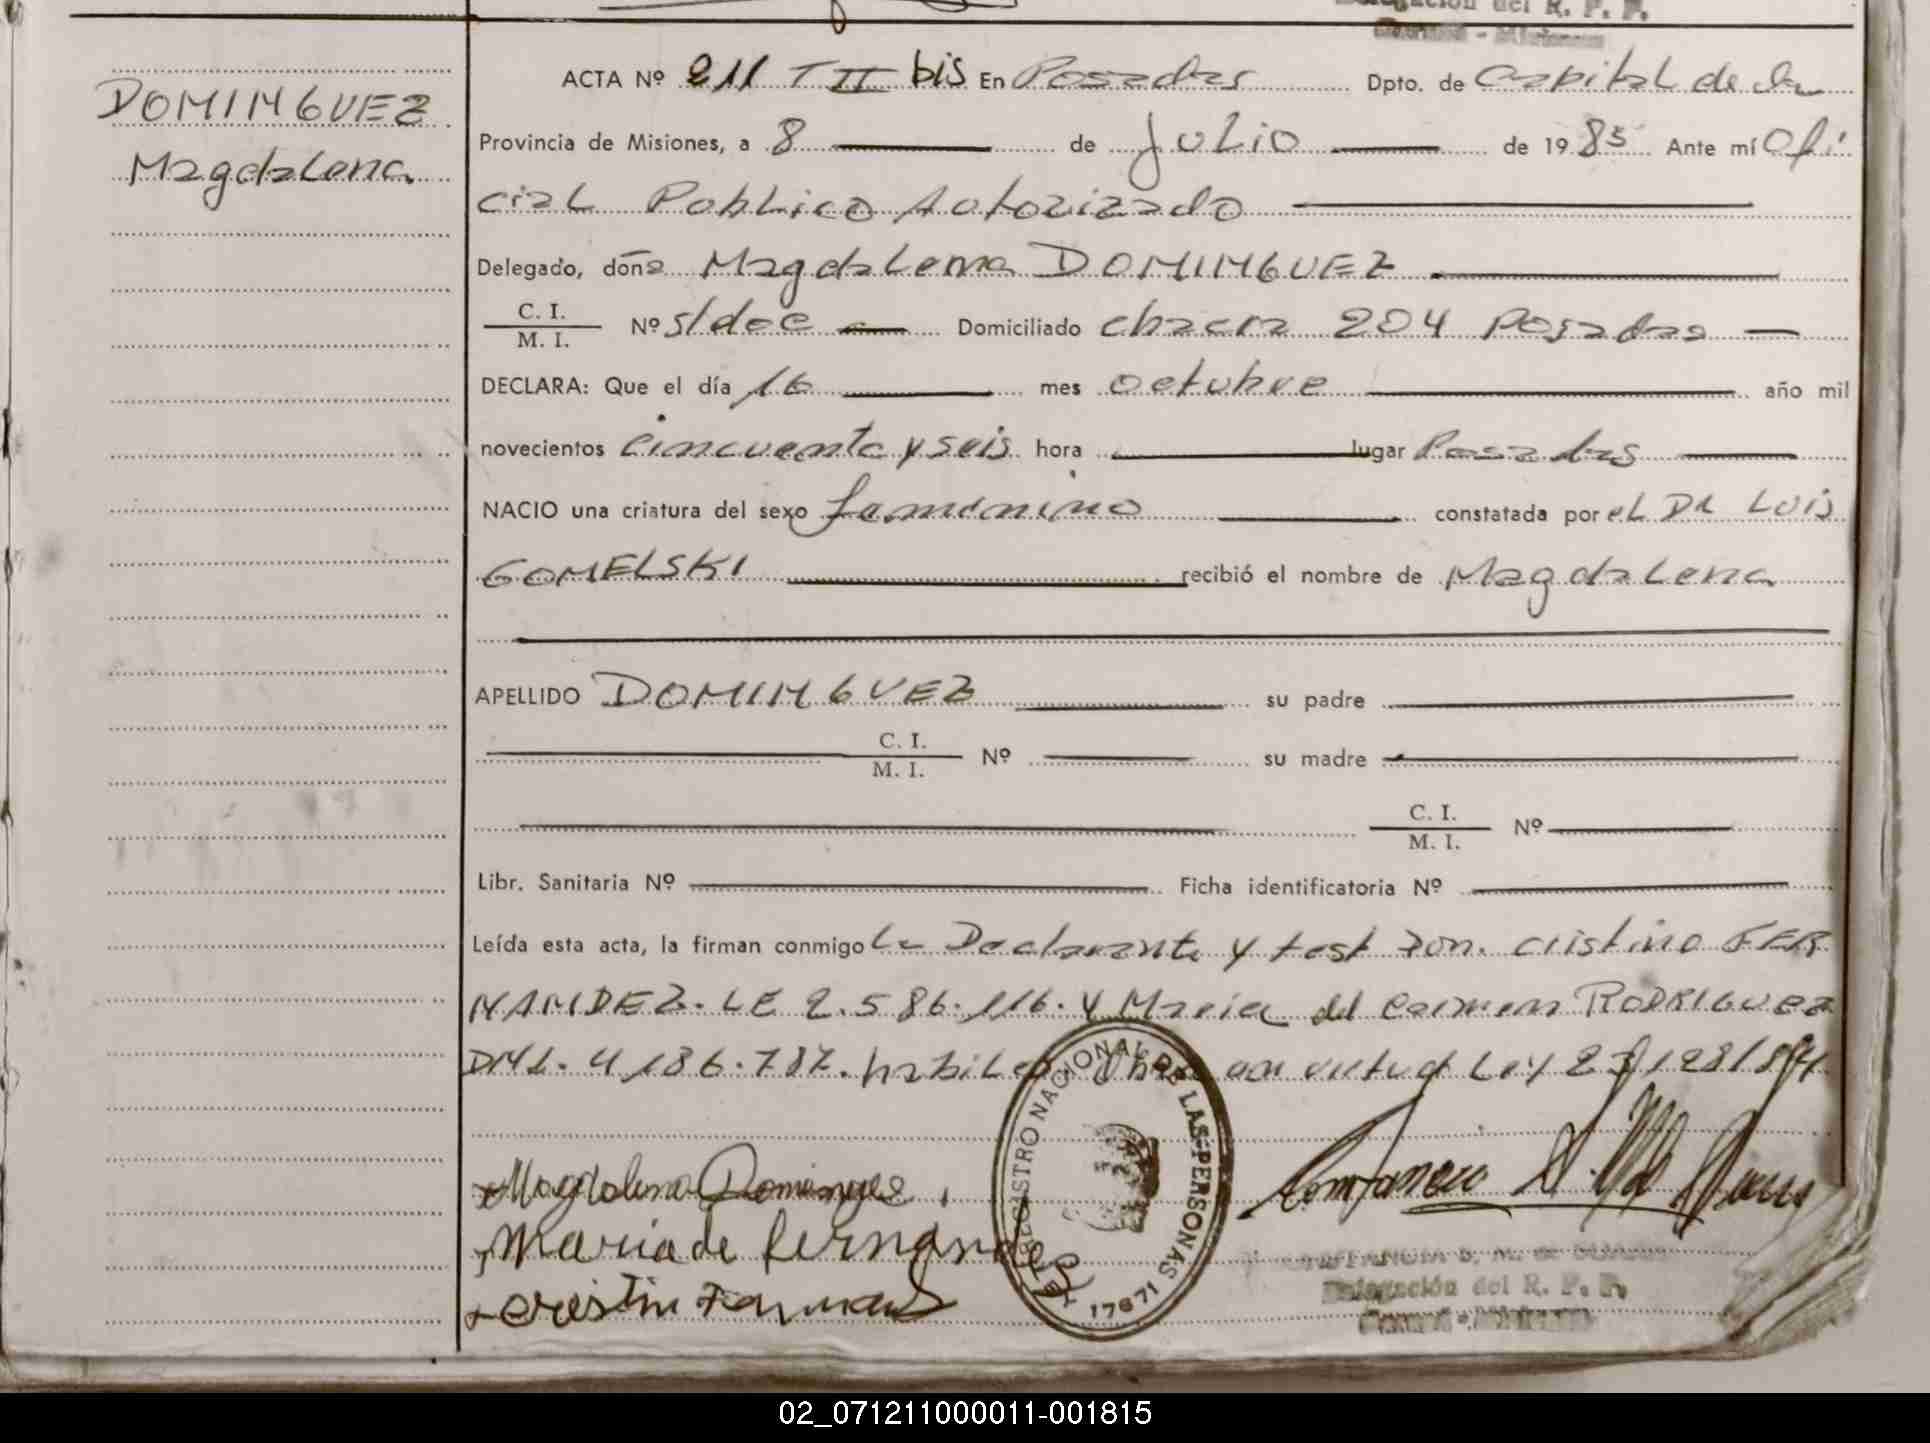 Delegación del R. P. P.
DOMINGUEZ
Magdalena
ACTA Nº 211 T II bis En Posadas Dpto. de Capital de la
Provincia de Misiones, a 8 de Julio de 1985 Ante mí Ofi
cial Publico Autorizado
Delegado, doña Magdalena DOMINGUEZ
C. I.
M. I. Nº s/doc Domiciliado chacra 204 Posadas
DECLARA: Que el día 16 mes octubre año mil
novecientos cincuenta y seis hora lugar Posadas
NACIO una criatura del sexo femenino constatada por el Dr Luis
GOMELSKI recibió el nombre de Magdalena
APELLIDO DOMINGUEZ su padre
C. I.
M. I. Nº su madre
C. I.
M. I. Nº
Libr. Sanitaria Nº Ficha identificatoria Nº
Leída esta acta, la firman conmigo la Declarante y test don. cristino FER
NANDEZ. LE 2.586.116. y Maria del Carmen RODRIGUEZ
DNI. 4 186.787. habiles en virtud Ley 23128/84
REGISTRO NACIONAL DE LAS PERSONAS
LEY 17671
Magdalena Dominguez
Maria de fernandes
Delegación del R. P. P.
02_071211000011-001815